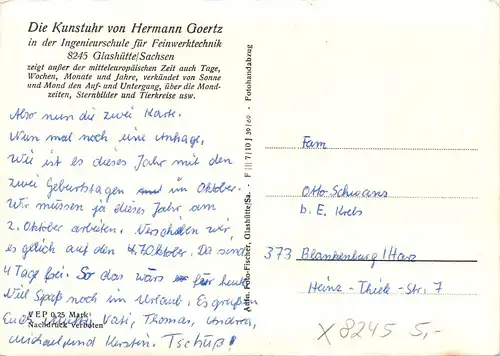 Die Kunstuhr von Hermann Goertz
in der Ingenieurschule für Feinwerktechnik
8245 Glashütte/Sachsen
zeigt außer der mitteleuropäischen Zeit auch Tage,
Wochen, Monate und Jahre, verkündet von Sonne
und Mond den Auf- und Untergang, über die Mond-
zeiten, Sternbilder und Tierkreise usw.
Also nun die zwei Karte.
Nun mal noch eine Anfrage,
wie ist es dieses Jahr mit den
zwei Geburtstagen im Oktober.
Wir müssen ja dieses Jahr am
2. Oktober arbeiten. Verschieben wir
es gleich auf den 7. Oktober. Da sind
4 Tage frei. So das wärs für heute
Viel Spaß noch im Urlaub. Es grüßen
Euch Vati, Thomas, Andrea,
Michael und Kersten. Tschüß!
VEP 0,25 Mark
Nachdruck verboten
Aufn. Foto-Fischer, Glashütte/Sa. - F III 7/10 J 30/60 - Fotohandabzug
Fam
Otto Schwans
b. E. Krebs
373 Blankenburg/Harz
Heinr-Thiek-Str. 7
X 8245 5,-